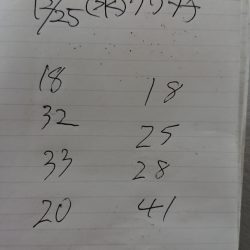 12/25
18 18
32 25
33 28
20 41